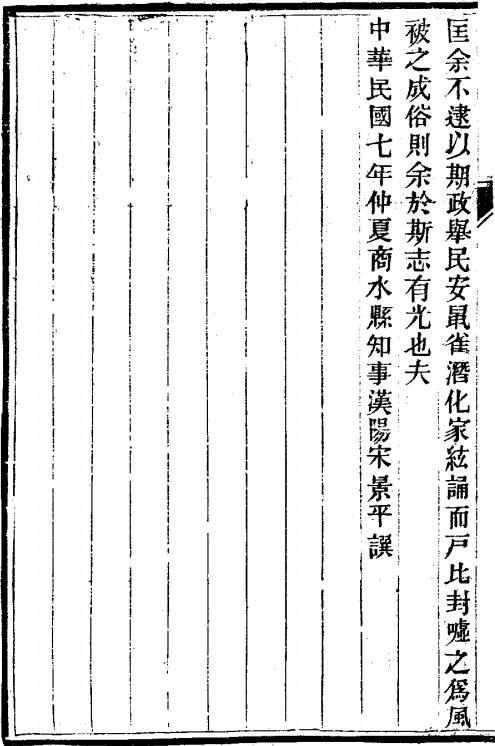 匡余不逮以期政舉民安鼠雀潛化家絃誦而戸比封噓之爲風
被之成俗則余於斯志有光也夫
中華民國七年仲夏商水縣知事漢陽宋景平譔